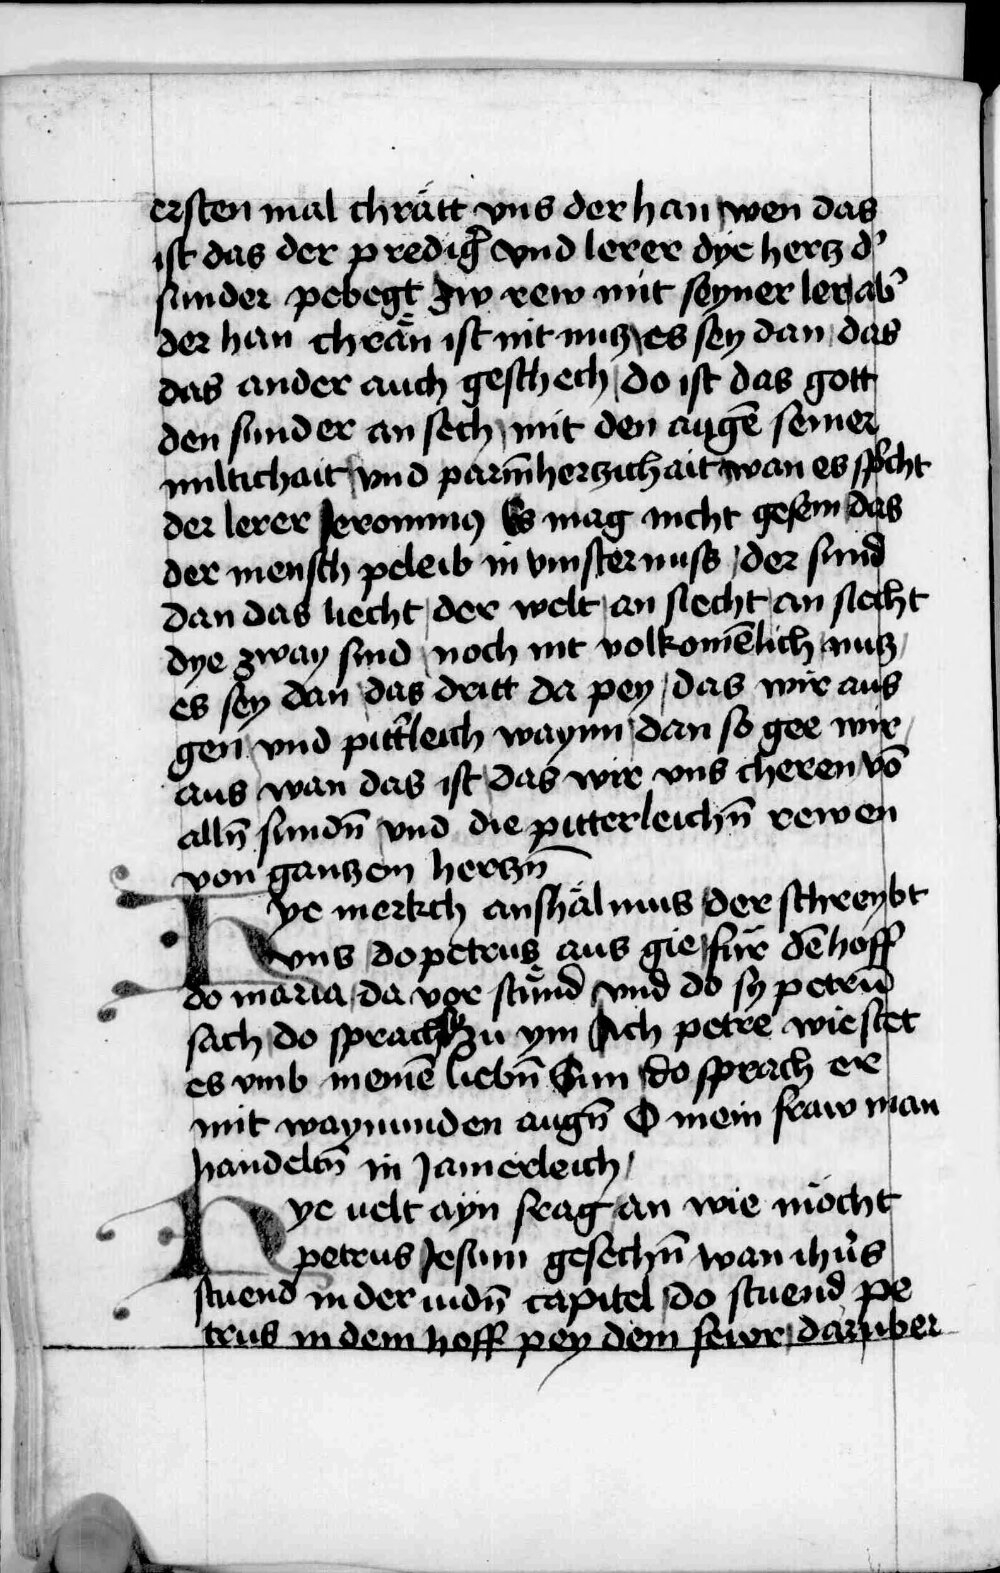 ersten mal chrätt vns der han wen das
ist das der predig̃ vnd lerer dye hertz d'
sunder pebegt Zw rew mit seyner ler ab'
der han chraͤn ist nit nutz es sey dan das
das ander auch geschech do ist das gott
den sunder an sech mit den augē seiner
miltichait vnd parm̄hertzichait wan es spͥcht
der lerer Jeronimꝰ Es mag nicht gesein das
der mensch peleib in vinsternuss der sund
dan das liecht der welt an siecht an siecht
dye zway sind noch nit volkomēlich nutz
es sey dan das dritt da pey das wir aus
gen vnd pitt'leich waynn dan so gee wir
aus wan das ist das wir vns cheren vō
alln̄ sundn̄ vnd die pitterleichn̄ rewen
von gantzem hertzn̄
Hye merkch anshälmus der schreybt
vns do petrus aus gie für dē hoff
do maria da vor stuͤnd vnd do sy petrū
sach do sprach sy zu ym Ach petre wie stet
es vmb meinē liebn̄ Sun do sprach er
mit waynunden augn̄ O mein fraw man
handeltn̄ in Jamerleich
Hye velt ayn frag an wie möcht
petrus Jesum gesechn̄ wan ih̄us
stuend in der iudn̄ capitel do stuend pe
trus in dem hoff pey dem fewr daruber